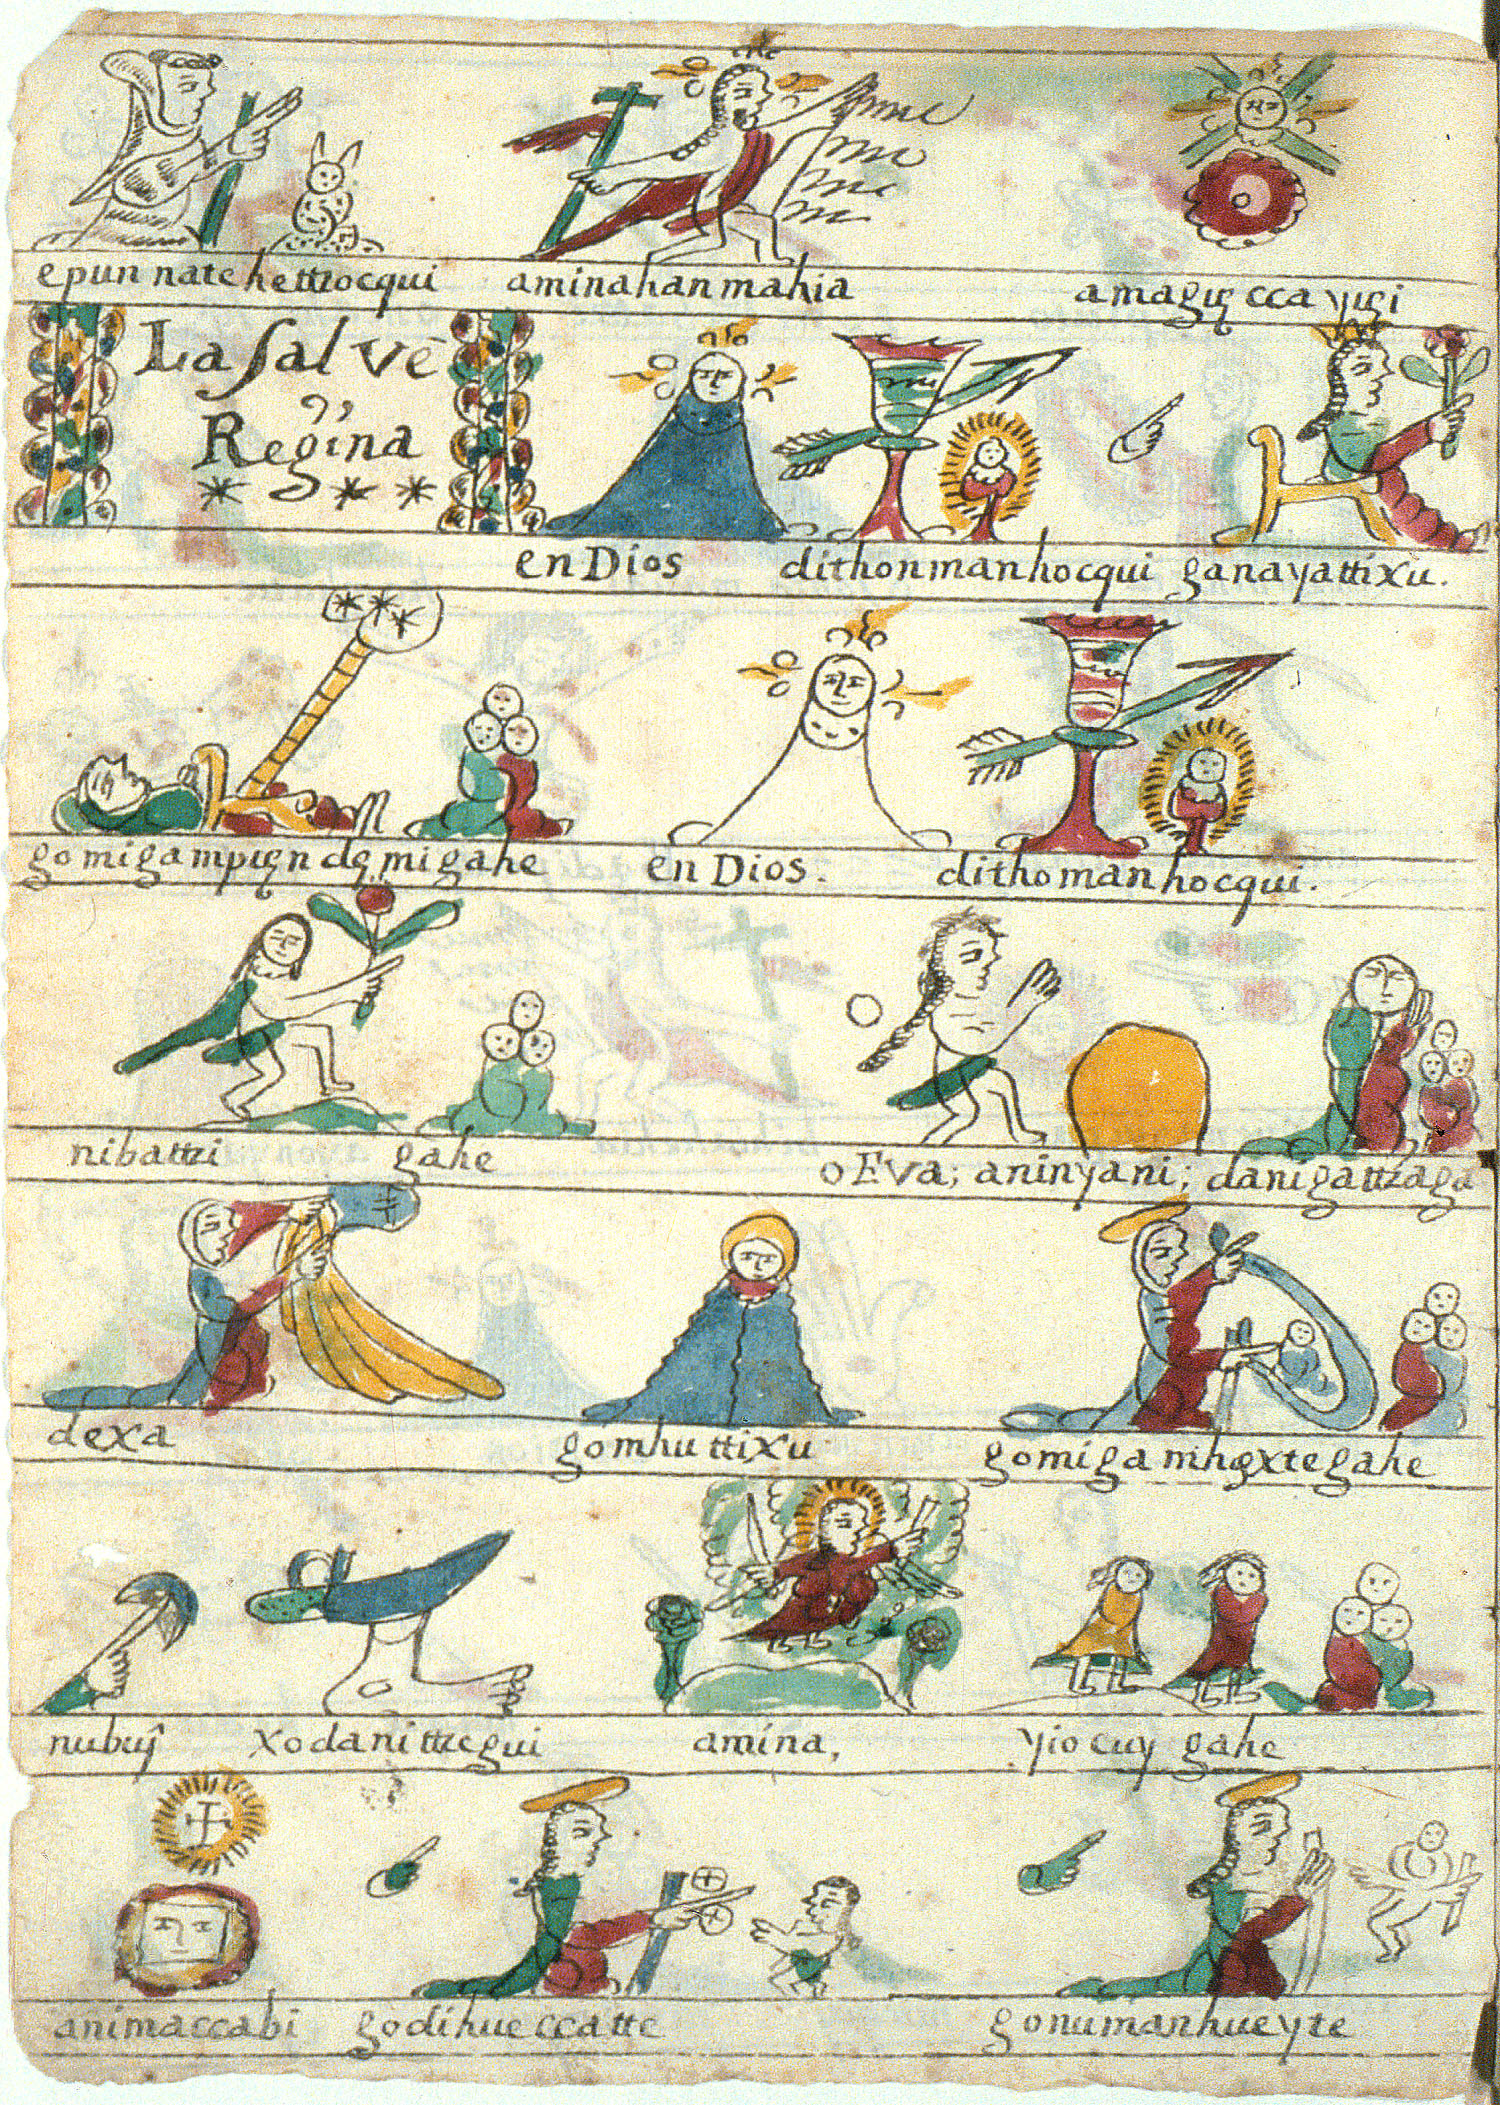 epun natehettzocqui aminahanmahia amagıȩccayıȩi
La salvè
Regina
en Dios dithonmanhocqui ganayattixu.
gomigampıȩndȩmigahe en Dios. dithomanhocqui.
nibattzi gahe o Eva; aninyani; danigattzaga
dexa gomhuttixu gomigamhȩxtegahe
nubuŷ xodanittzegui amina, yiocuy gahe
animaccabi godihueccatte gonumanhueyte